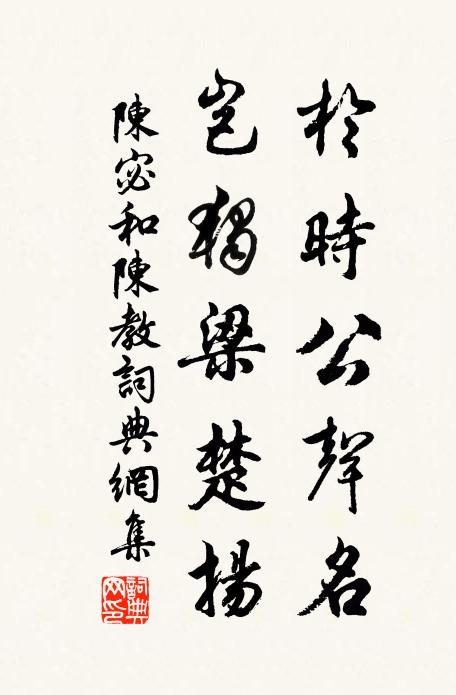 於時公聲名
豈獨梁楚揚
陳宓和陳教詞典網集
詞典网印